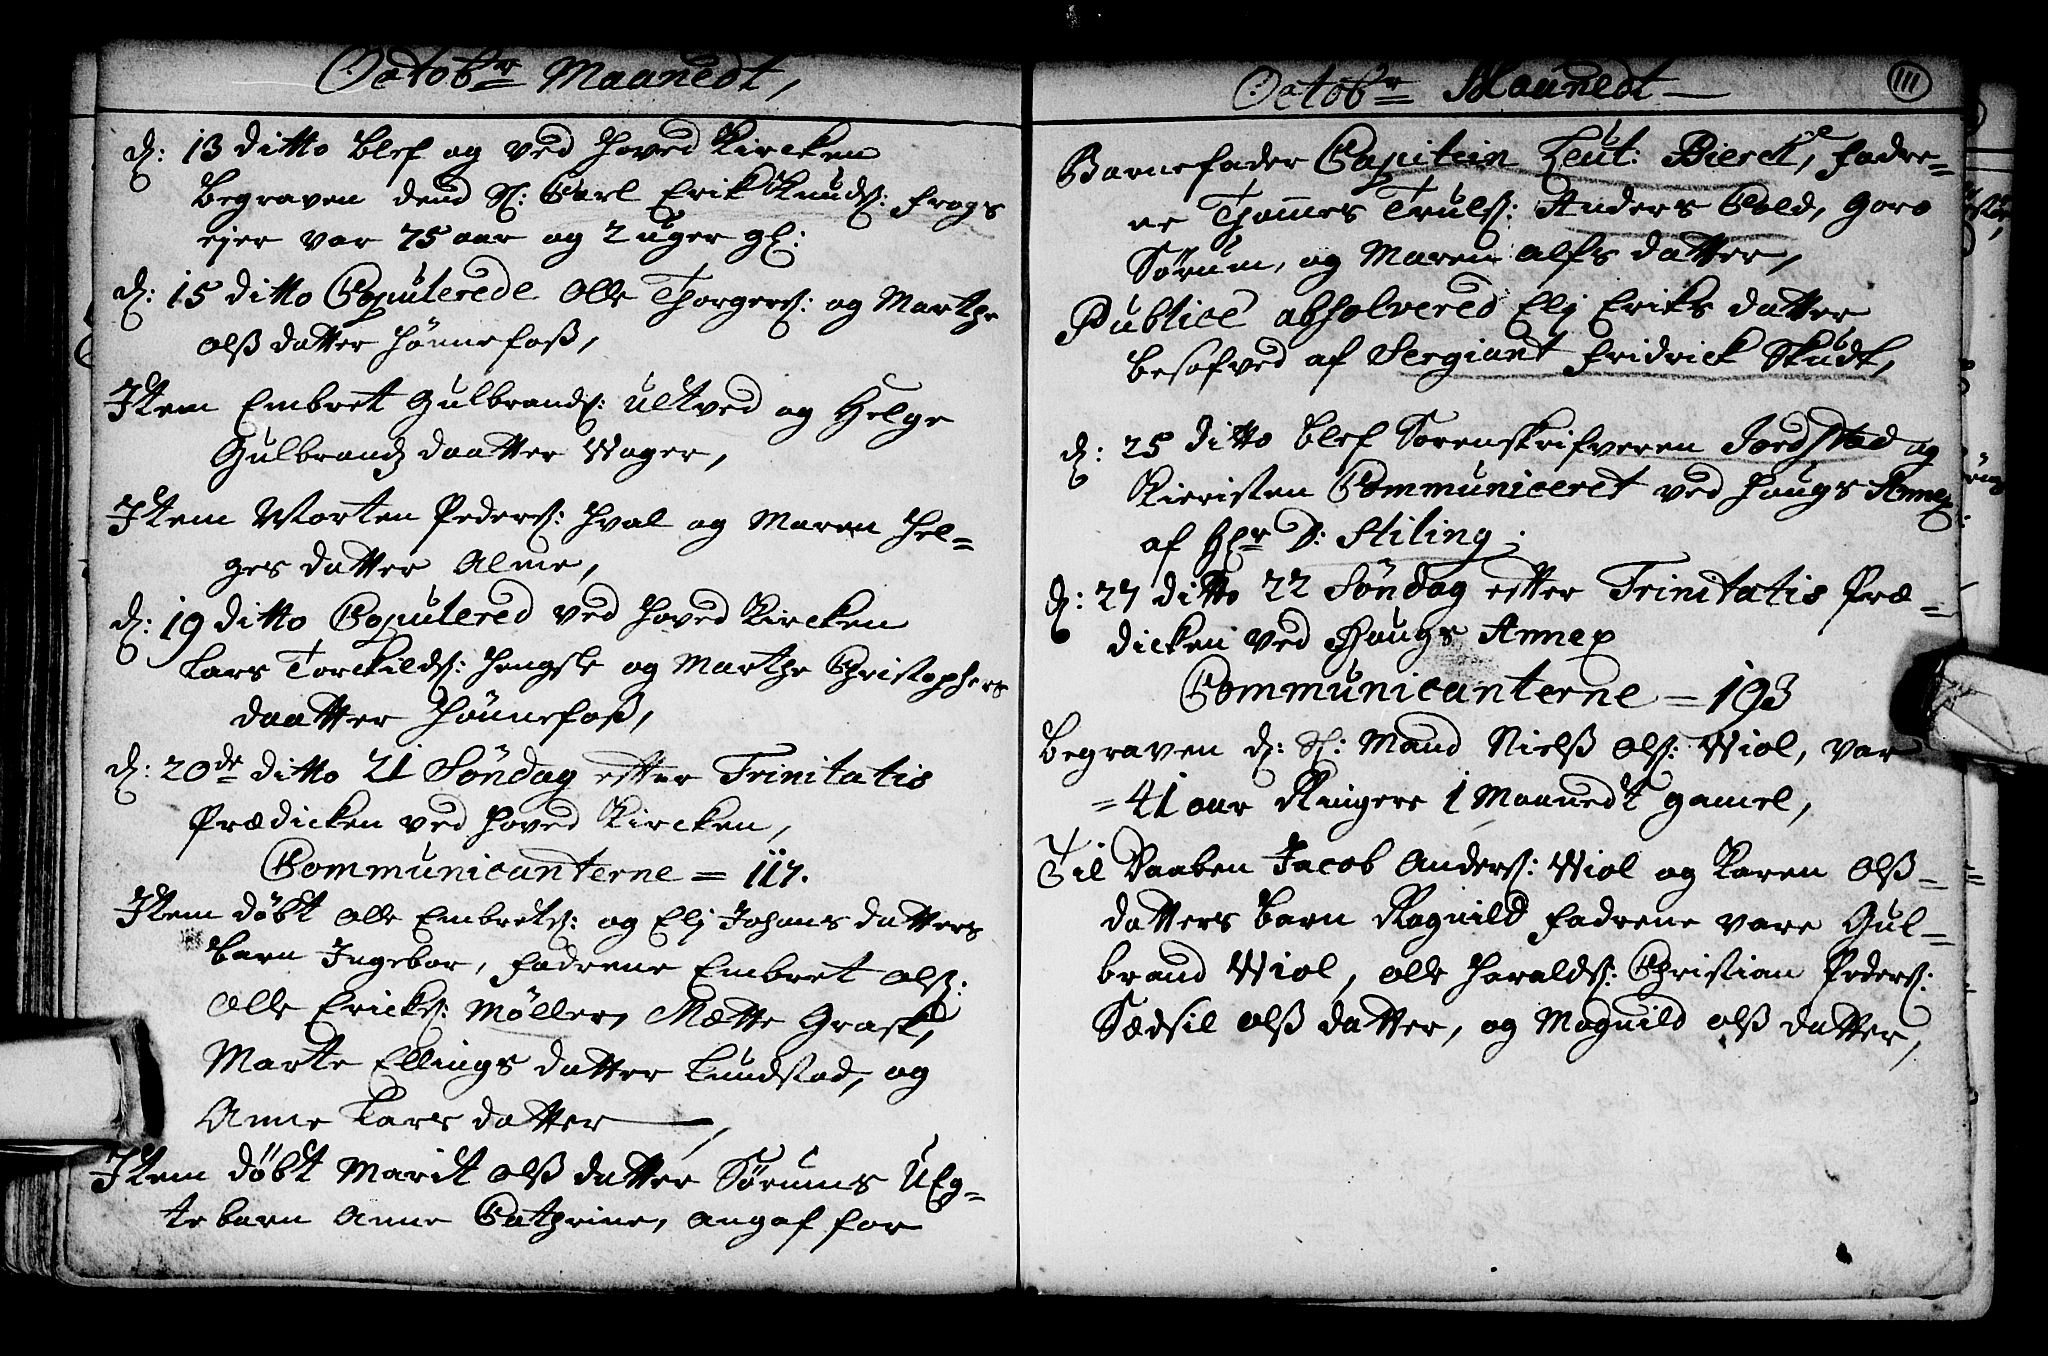 Octobr Maanedt,
d: 13 ditto blef og ved Hoved Kircken
Begraven dend Sl: Carl Erik Knuds: Frogs
ejer var 75 aar og 2 uger gl:
d: 15 ditto Copulerede Olle Thorgers: og Marthe
Olß datter Hønnefoß,
Item Embret Gulbrands: Ultved og Helge
Gulbrands daatter Wager,
Item Morten Peders: Hval og Maren Hel=
ges datter Alme,
d: 19 ditto Copulered ved Hoved Kircken
Lars Torckilds: Hengsle og Marthe Christophers
daatter Hønnefoß,
d: 20de ditto 21 Søndag efter Trinitatis
Prædicken ved Hoved Kircken,
Communicanterne = 117.
Item døbt Olle Embrets: og Elj Johans datters
barn Ingebor, Fadrene Embret Olß:
Olle Ericks: Møller, Mætte Grask,
Marte Ellings datter Lundstad, og
Anne Lars datter —,
Item døbt Maridt Olß datter Sørums UEg=
te barn Anne Cathrine, angaf for
Octobr Maanedt —
111
Barnefader Capitein Leut: Bierck, Fadre=
ne Thommes Truls: Anders Cold, Goro
Sørum, og Maren Alfs datter,
Publice absolvered Elj Eriks datter
besofved af Sergiant Fridrick Skudt,
d: 25 ditto blef Sorenskrifveren Jordstad og
Kieristen Communiceret ved Hougs Annex
af Hr D: Stiling.
d: 27 ditto 22 Søndag efter Trinitatis Præ=
dicken ved Hougs Annex
Communicanterne = 193
Begraven d: Sl: Mand Nielß Ols: Wiol, var
= 41 aar Ringere 1 Maanedt gamel,
Til Daaben Jacob Anders: Wiol og Karen Olß=
datters barn Ragnild Fadrene vare Gul=
brand Wiol, Olle Haralds: Christian Peders:
Sædsil Olß datter, og Magnild Olß datter,